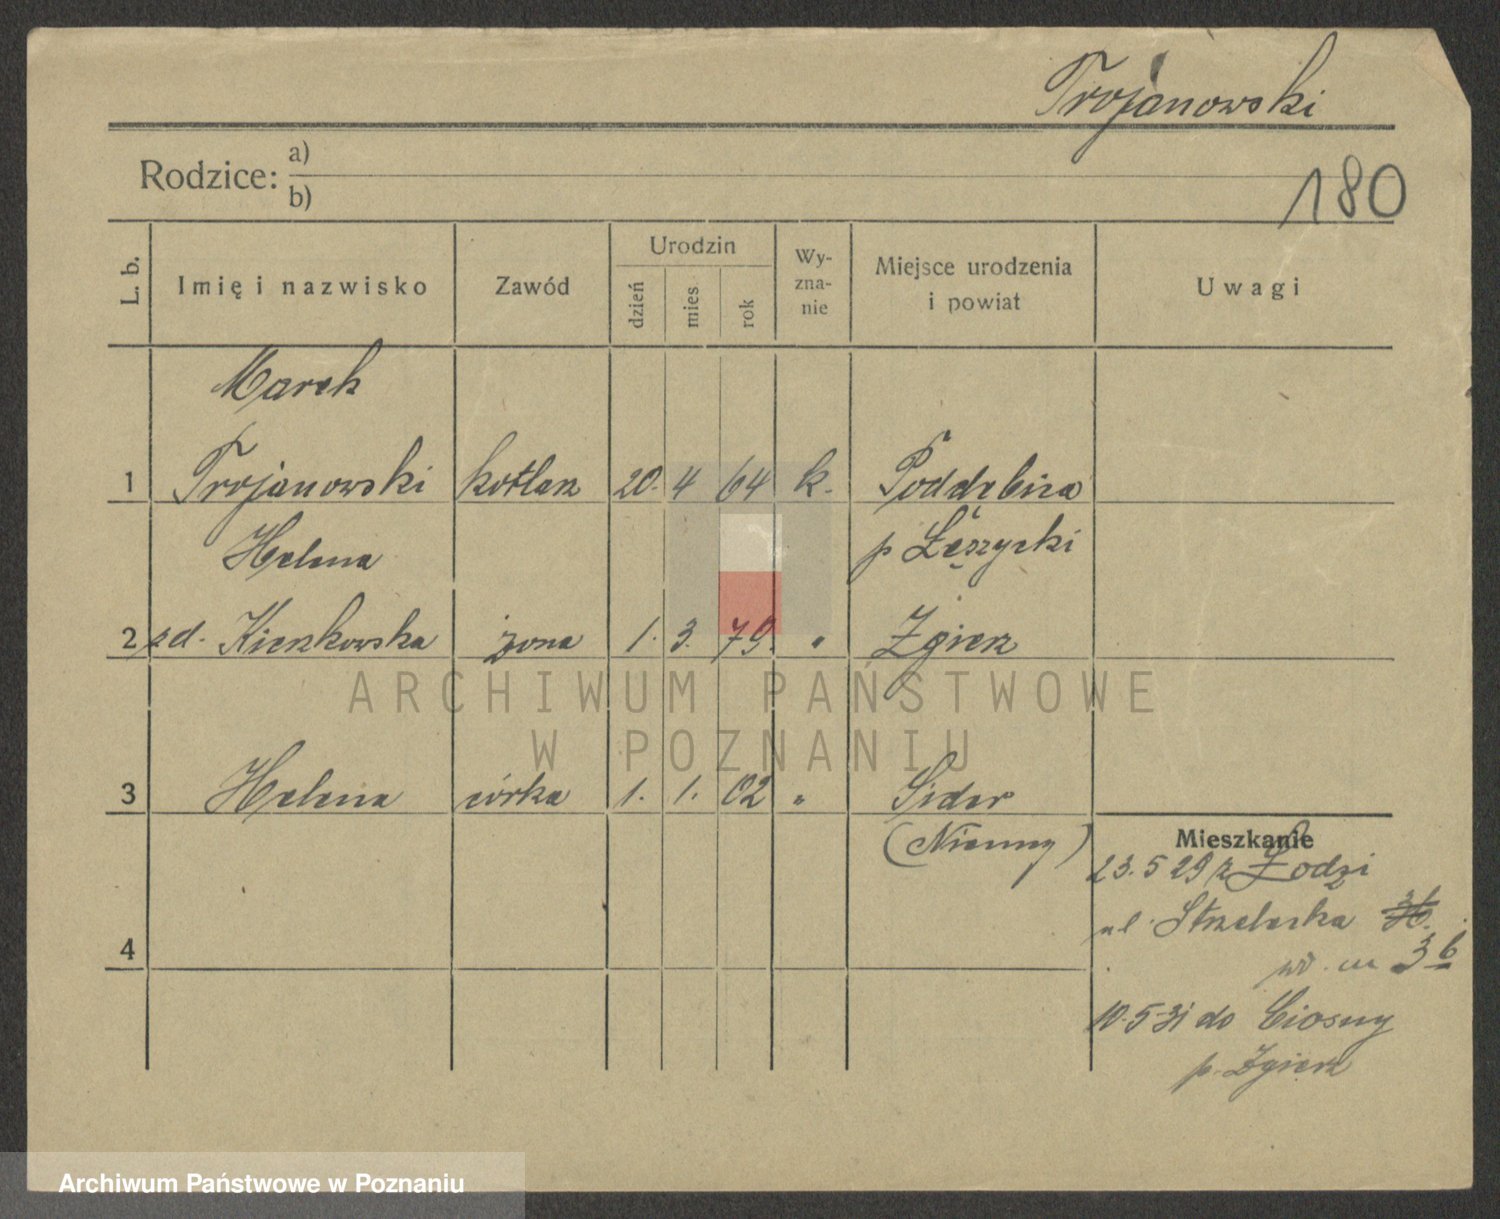 Trojanowski
180
Rodzice: a)
b)
L. b.
Imię i nazwisko
Zawód
Urodzin
dzień
mies
rok
Wy-
zna-
nie
Miejsce urodzenia
i powiat
Uwagi
Marek
1 Trojanowski kotlarz 20. 4 64 k. Poddębice
Helena p Łęczycki
2 zd. Kierzkowska żona 1. 3. 79. " Zgierz
3 Helena córka 1. 1. 02 "
(Niemcy)
Mieszkanie
23.5 29 z Łodzi
ul. Strzelecka
m 36
4
10.5 31 do Ciosny
p. Zgierz
ARCHIWUM PAŃSTWOWE
W POZNANIU
Archiwum Państwowe w Poznaniu